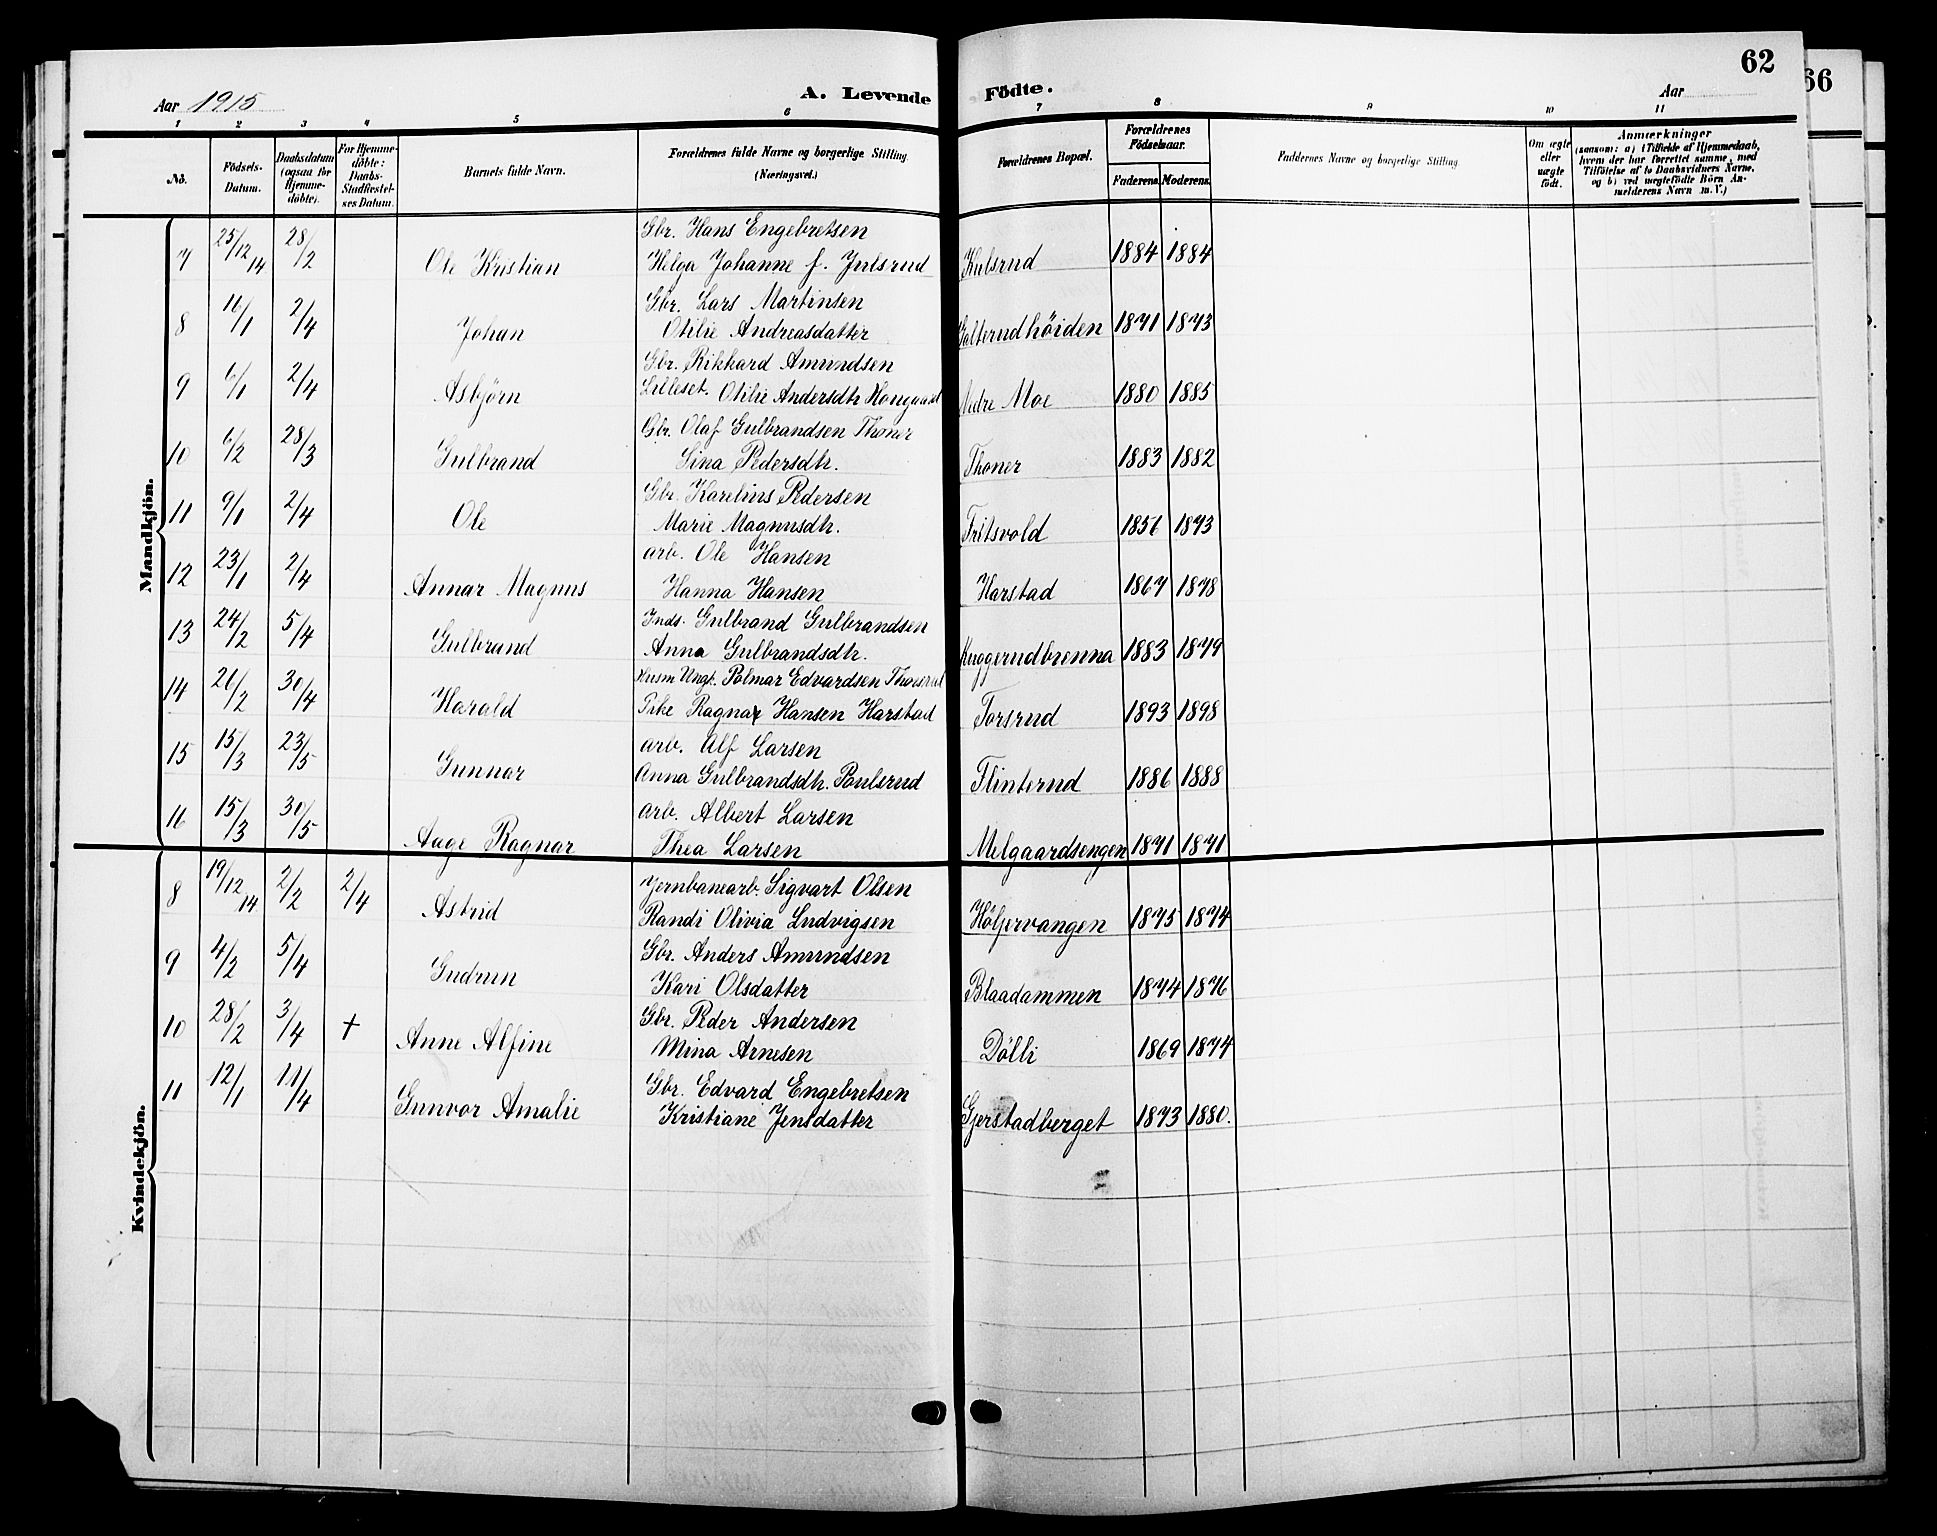 62
66
Aar 1915
A. Levende Födte.
Aar
1 2 3 4 5 6 7 8 9 10 11
No.
Födsels-Datum.
Daabsdatum (ogsaa for Hjemme-döbte).
For Hjemme-döbte: Daabs-Stadfæstel-ses Datum.
Barnets fulde Navn.
Forældrenes fulde Navne og borgerlige Stilling (Næringsvei.)
Forældrenes Bopæl.
Forældrenes Födselsaar.
Faderens. Moderens.
Faddernes Navne og borgerlige Stilling
Om ægte eller uægte födt.
Anmærkninger
(saasom: a) i Tilfælde af Hjemmedaab, hvem der har forrettet samme, med Tilföielse af to Daabsvidners Navne, og b) ved uægtefödte Börn An-melderens Navn m. V.)
Mandkjön.
Gbr. Hans Engebretsen
7 25/12 14 28/2 Ole Kristian Helga Johanne f. Julsrud Kulsrud 1884 1884
Gbr. Lars Martinsen
8 16/1 2/4 Johan Otilie Andreasdatter Galterudhöiden 1871 1873
Gbr. Rikhard Amundsen
9 6/1 2/4 Asbjörn Lilleset. Otilie Andersdtr Nedre Moe 1880 1885
Gbr. Olaf Gulbrandsen Thoner
10 6/2 28/3 Gulbrand Sina Pedersdtr. Thoner 1883 1882
Gbr. Karelius Pedersen
11 9/1 2/4 Ole Marie Magnusdtr. Fritsvold 1851 1873
arb. Ole Hansen
12 23/1 2/4 Annar Magnus Hanna Hansen Harstad 1867 1878
Inds. Gulbrand Gulbrandsen
13 24/2 5/4 Gulbrand Anna Gulbrandsdtr. Kuggerudbrenna 1883 1879
Ungk. Polmar Edvardsen
14 26/2 30/4 Harald Pike Ragna Hansen Harstad Torsrud 1893 1898
arb. Alf Larsen
15 15/3 23/5 Gunnar Anna Gulbrandsdtr. Poulsrud Flinterud 1886 1888
arb. Albert Larsen
16 15/3 30/5 Aage Ragnar Thea Larsen Melgaardsengen 1871 1871
Kvindekjön.
Jernbanearb. Sigvart Olsen
8 19/12 14 2/2 2/4 Astrid Randi Olivia Ludvigsen Höljervangen 1875 1874
Gbr. Anders Amundsen
9 4/2 5/4 Gudrun Kari Olsdatter Blaadammen 1874 1876
Gbr. Peder Andersen
10 28/2 3/4 + Anne Alfine Mina Arnesen Dölli 1869 1874
Gbr. Edvard Engebretsen
11 12/1 11/4 Gunvor Amalie Kristiane Jensdatter Gjerstadberget 1873 1880.